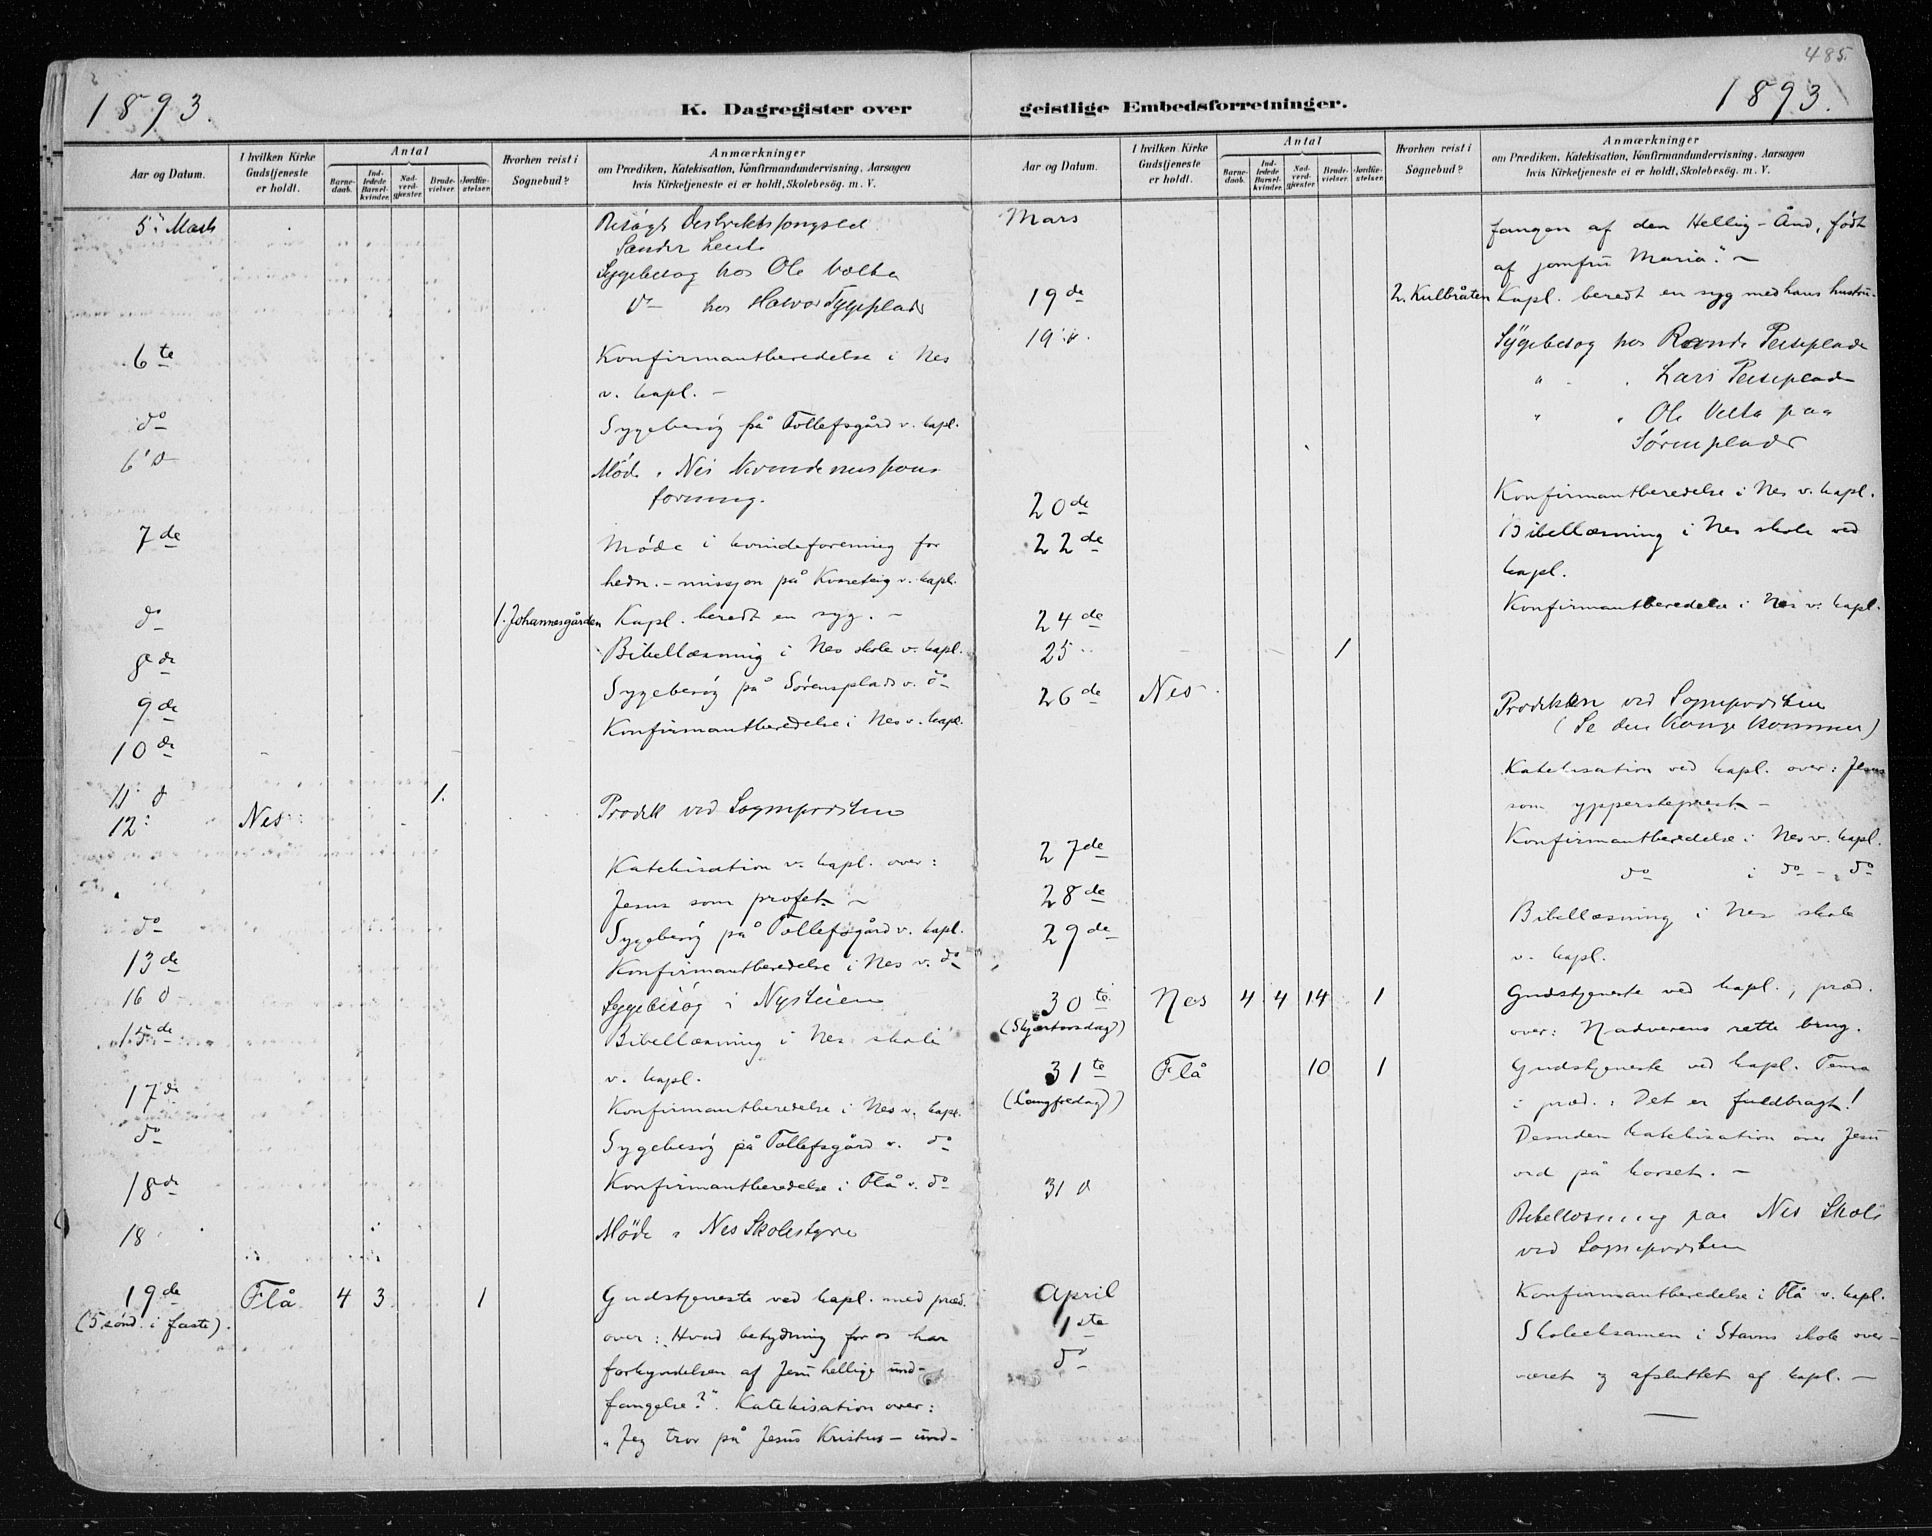 485.
1893.
K. Dagregister over
geistlige Embedsforretninger.
1893.
Aar og Datum.
I hvilken Kirke Gudstjeneste er holdt.
Antal
Barnedaab.
Indledede Barselkvinder.
Nadverdgjester.
Brudevielser.
Jordfæstelser.
Hvorhen reist i Sognebud?
Anmærkninger
om Prædiken, Katekisation, Konfirmandundervisning, Aarsagen
hvis Kirketjeneste ei er holdt, Skolebesøg. m. V.
5: Mars
Sygebesøg hos Ole
do hos Halvor
6te Konfirmantberedelse i Nes
v. kapl. –
do Sygebesøg på Tollefsgård v. kapl.
6 d Møde i Nes
forening.
7de Møde i kvindeforening for
hedn.-missjon på v. kapl.
do 1. Johannesgården Kapl. beredt en syg. –
8de Bibellæsning i Nes skole v. kapl.
9de Sygebesøg på Sørensplads v. do
10de Konfirmantberedelse i Nes v. kapl.
11: d 1.
12: Nes Prædik ved Sognepresten
Katekisation v. kapl. over:
Jesus som profet –
do Sygebesøg på Tollefsgård v. kapl.
13de Konfirmantberedelse i Nes v. do
16 d Sygebesøg i Nysteien
15de Bibellæsning i Nes skole
v. kapl.
17de Konfirmantberedelse i Nes v. kapl.
do Sygebesøg på Tollefsgård v. do
18de Konfirmantberedelse i Flå v. do
18 Møde i Nes Skolestyre
19de Flå 4 3 1 Gudstjeneste ved kapl. med præd.
(5 sønd. i faste). over: Hvad betydning for os har
forkyndelsen af Jesu hellige und-
fangelse?". Katekisation over:
„Jeg tror på Jesus Kristus – und-
Aar og Datum.
I hvilken Kirke Gudstjeneste er holdt.
Antal
Barnedaab.
Indledede Barselkvinder.
Nadverdgjester.
Brudevielser.
Jordfæstelser.
Hvorhen reist i Sognebud?
Anmærkninger
om Prædiken, Katekisation, Konfirmandundervisning, Aarsagen
hvis Kirketjeneste ei er holdt, Skolebesøg. m. V.
Mars fangen af den Hellig-Ånd, født
af jomfru Maria". –
19de 2. Kulbråten Kapl. beredt en syg med hans hustru –
19 d. Sygebesøg hos
" " Lars
" " Ole Velta paa
Sørensplads
20de Konfirmantberedelse i Nes v. kapl.
22de Bibellæsning i Nes skole ved
kapl.
24de Konfirmantberedelse i Nes v. kapl.
25 1
26de Nes Prædiken ved Sognepresten
(Se din Konge kommer)
Katekisation ved kapl. over: Jesus
som yppersteprest –
27de Konfirmantberedelse i Nes v. kapl.
28de do i do – do
29de Bibellæsning i Nes skole
v. kapl.
30te Nes 4 4 14 1 Gudstjeneste ved kapl., præd.
(Skjærtorsdag) over: Nadverens rette brug.
31te Flå 10 1 Gudstjeneste ved kapl. Tema
(Langfredag) i præd.: Det er fuldbragt!
Desuden katekisation over Jesu
ord på korset. –
31 d Bibellæsning paa Nes Skole
ved Sognepresten
April
1ste Konfirmantberedelse i Flå v. kapl.
do Skoleeksamen i Stavns skole over-
været og afsluttet af kapl. –